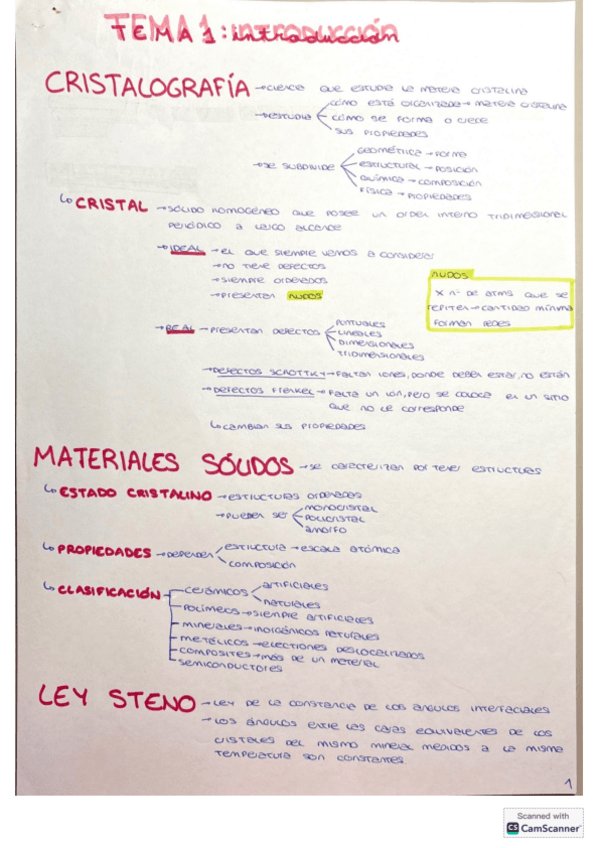 TEMA 1: introducción
CRISTALOGRAFÍA → ciencia que estudia la materia cristalina
→ estudia
cómo está organizada → materia cristalina
cómo se forma o crece
sus propiedades
→ se subdivide
geométrica → forma
estructural → posición
química → composición
física → propiedades
↳ CRISTAL → sólido homogéneo que posee un orden interno tridimensional
periódico a largo alcance
→ IDEAL → el que siempre vamos a considerar
→ no tiene defectos
→ siempre ordenados
→ presentan NUDOS
NUDOS
x nº de atms que se
repiten → cantidad mínima
forman redes
→ REAL → presentan defectos
puntuales
lineales
dimensionales
tridimensionales
→ defectos Scrottky → faltan iones, donde deben estar, no están
→ defectos Frenkel → falta un ión, pero se coloca en un sitio
que no le corresponde
↳ cambian sus propiedades
MATERIALES SÓLIDOS → se caracterizan por tener estructura
↳ ESTADO CRISTALINO → estructuras ordenadas
→ pueden ser
monocristal
policristal
amorfo
↳ PROPIEDADES → dependen
estructura → escala atómica
composición
↳ CLASIFICACIÓN
cerámicos
artificiales
naturales
polímeros → siempre artificiales
minerales → inorgánicos naturales
metálicos → electrones deslocalizados
composites → más de un material
semiconductores
LEY STENO → ley de la constancia de los ángulos interfaciales
→ los ángulos entre las caras equivalentes de los
cristales del mismo mineral medidos a la misma
temperatura son constantes.
1
Scanned with
CS CamScanner